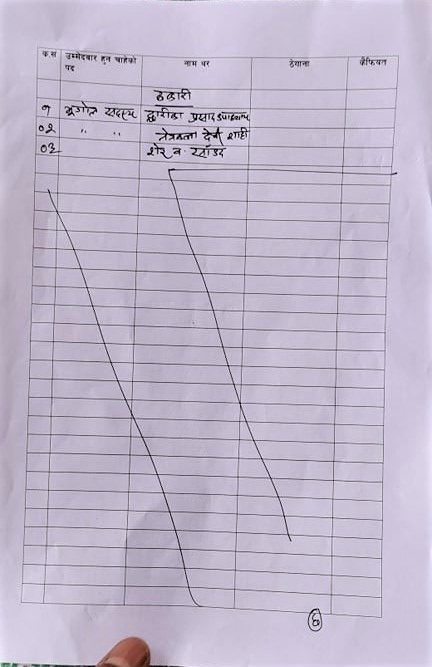 क.सं उम्मेदवार हुन चाहेको पद नाम थर ठेगाना कैफियत
१ भूगोल सदस्य द्वारीका प्रसाद उपाध्याय
०२ " " देवी शाही
०३ शेर ब.
६